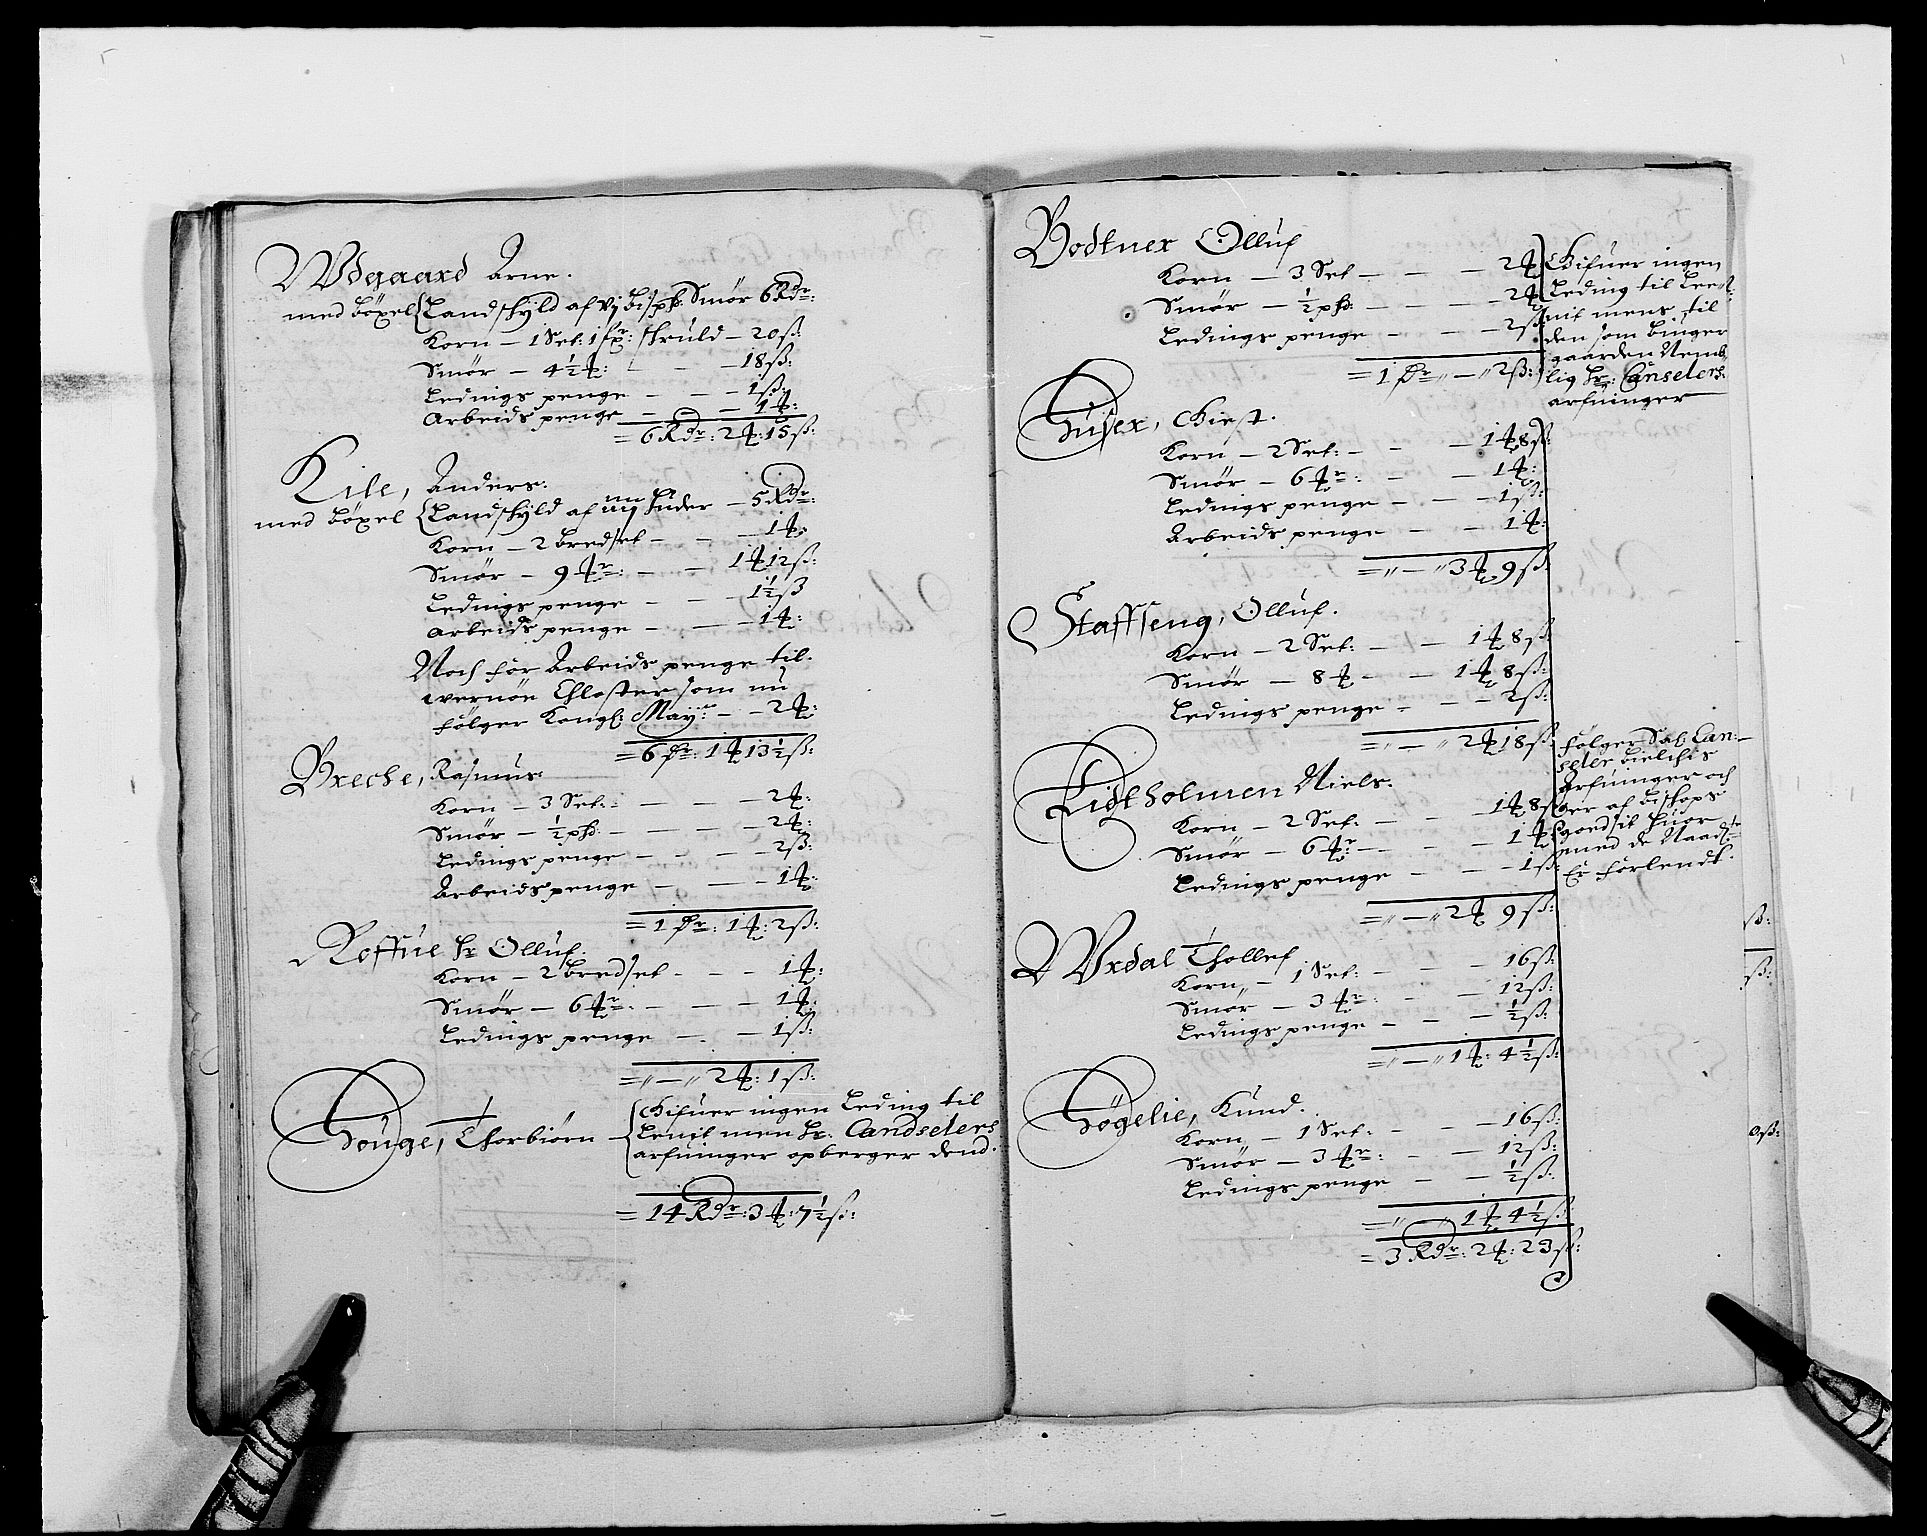 Wdgaard Arne.
med böxel {Landskyld af vj Bispk: Smör 6 Rdr:
Korn — 1 Set: 1 fr: skruld — 20 ß:
Smör — 4½ ℔: — — 18 ß:
Ledings penge — — 1 ß:
Arbeids penge — — 1 ℔:
= 6 Rdr: 2 ℔: 15 ß:
Kile, Anders:
med böxel {Landskyld af huder — 5 Rdr:
Korn — 2 bredset — — 1 ℔:
Smör — 9 ℔r: — — 1 ℔ 12 ß:
Ledings penge — — 1½ ß
Arbeids penge — — 1 ℔:
Noch for Arbeids penge til
wernöe Closter som nu
fölger Kongl: Mayt: — — 2 ℔:
= 6 dr: 1 ℔ 13½ ß:
Breche, Rasmus:
Korn — 3 Set: — — 2 ℔:
Smör — ½ pd: — — — 2 ℔:
Ledings penge — — — 2 ß:
Arbeids penge — — — 1 ℔:
= 1 dr: 1 ℔: 2 ß:
Roffue hr Olluf.
Korn — 2 bredset — — 1 ℔:
Smör — 6 ℔r: — — 1 ℔:
Ledings penge — — 1 ß:
= " — " 2 ℔: 1 ß:
Houge, Thorbiörn — {Gifuer ingen Leding til
Lenit men hr: Candselers
arfuinger opberger dend.
= 14 Rdr: 3 ℔: 7½ ß:
Bodtner Olluf
Korn — 3 Set — — 2 ℔
Smör — ½ pd: — — 2 ℔
Ledings penge — — 2 ß
= 1 dr " — " 2 ß:
Gifuer ingen
Leding til Lee-
nit mens til
den som binger
gaarden Nemb-
lig hr: Canselers
arfuinger
Huser, Giest.
Korn — 2 Set: — — 1 ℔ 8 ß:
Smör — 6 ℔r: — — 1 ℔:
Ledings penge — — — 1 ß:
Arbeids penge — — 1 ℔:
= " — " 3 ℔ 9 ß:
Staffseng, Olluf.
Korn — 2 Set: — — 1 ℔ 8 ß:
Smör — 8 ℔ — — 1 ℔ 8 ß:
Ledings penge — — 2 ß:
= " — " 2 ℔ 18 ß:
Eidtholmen Niels.
Korn — 2 Set: — — 1 ℔ 8 ß
Smör — 6 ℔r: — — 1 ℔
Ledings penge — — 1 ß:
= " — " 2 ℔ 9 ß:
fölger Sal: Can-
seler bielchis
Arfuinger och
er af biskops
goedsit huor
med de Naadst
Er forlendt.
Wrdal Thollef
Korn — 1 Set: — — 16 ß:
Smör — 3 ℔r: — — 12 ß:
Ledings penge — — ½ ß:
= " — " 1 ℔: 4½ ß:
Högelie, Kund.
Korn — 1 Set: — — 16 ß:
Smör — 3 ℔r: — — 12 ß:
Ledings penge — — ½ ß:
= " — " 1 ℔ 4½ ß:
= 3 Rdr: 2 ℔: 23 ß:
ß:
ß:
0 ß: